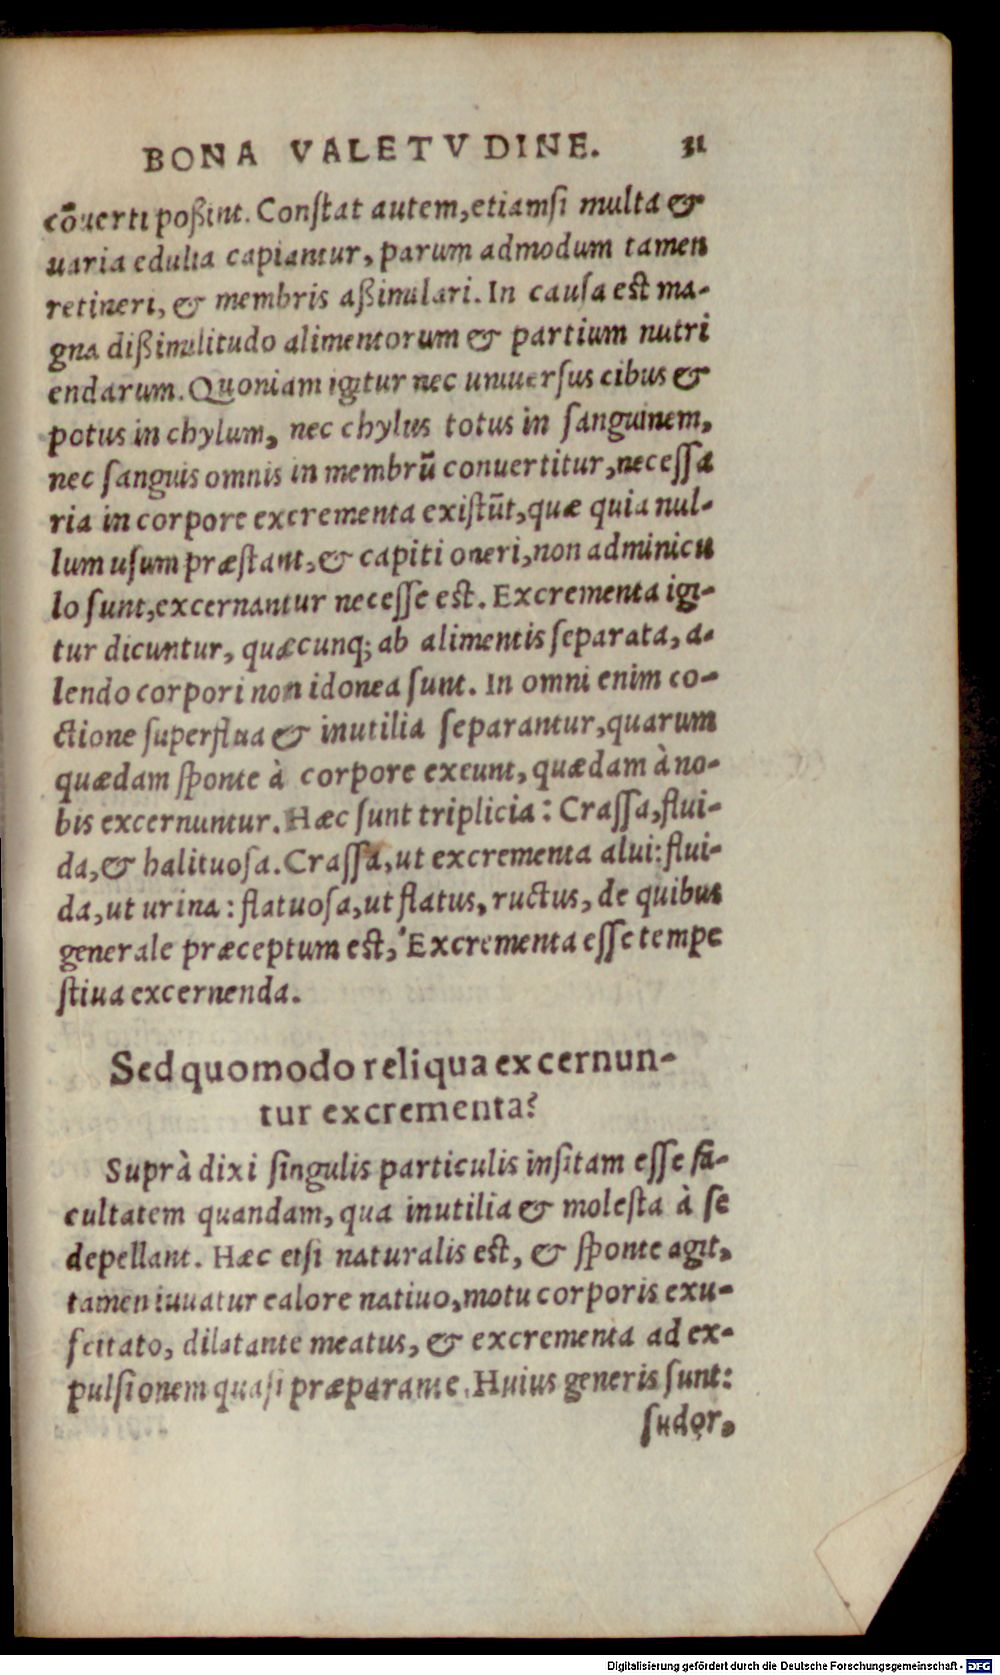 BONA VALETVDINE. 31
cōuerti poßint. Conſtat autem, etiamſi multa &
uaria edulia capiantur, parum admodum tamen
retineri, & membris aßimulari. In cauſa est ma-
gna dißimilitudo alimentorum & partium nutri
endarum. Quoniam igitur nec uniuerſus cibus &
potus in chylum, nec chylus totus in ſanguinem,
nec ſanguis omnis in membrū conuertitur, neceſſa
ria in corpore excrementa exiſtūt, quæ quia nul-
lum uſum præſtant, & capiti oneri, non adminicu
lo ſunt, excernantur neceſſe est. Excrementa igi-
tur dicuntur, quæcunq; ab alimentis ſeparata, a-
lendo corpori non idonea ſunt. In omni enim co-
ctione ſuperflua & inutilia ſeparantur, quarum
quædam ſponte à corpore exeunt, quædam à no-
bis excernuntur. Hæc ſunt triplicia: Craſſa, flui-
da, & halituoſa. Craſſa, ut excrementa alui: flui-
da, ut urina: flatuoſa, ut flatus, ructus, de quibus
generale præceptum est, Excrementa eſſe tempe
ſtiua excernenda.
Sed quomodo reliqua excernun-
tur excrementa?
Suprà dixi ſingulis particulis inſitam eſſe fa-
cultatem quandam, qua inutilia & moleſta à ſe
depellant. Hæc etſi naturalis est, & ſponte agit,
tamen iuuatur calore natiuo, motu corporis exu-
ſcitato, dilatante meatus, & excrementa ad ex-
pulſionem quaſi præparante. Huius generis ſunt:
ſudor,
Digitalisierung gefördert durch die Deutsche Forschungsgemeinschaft - DFG